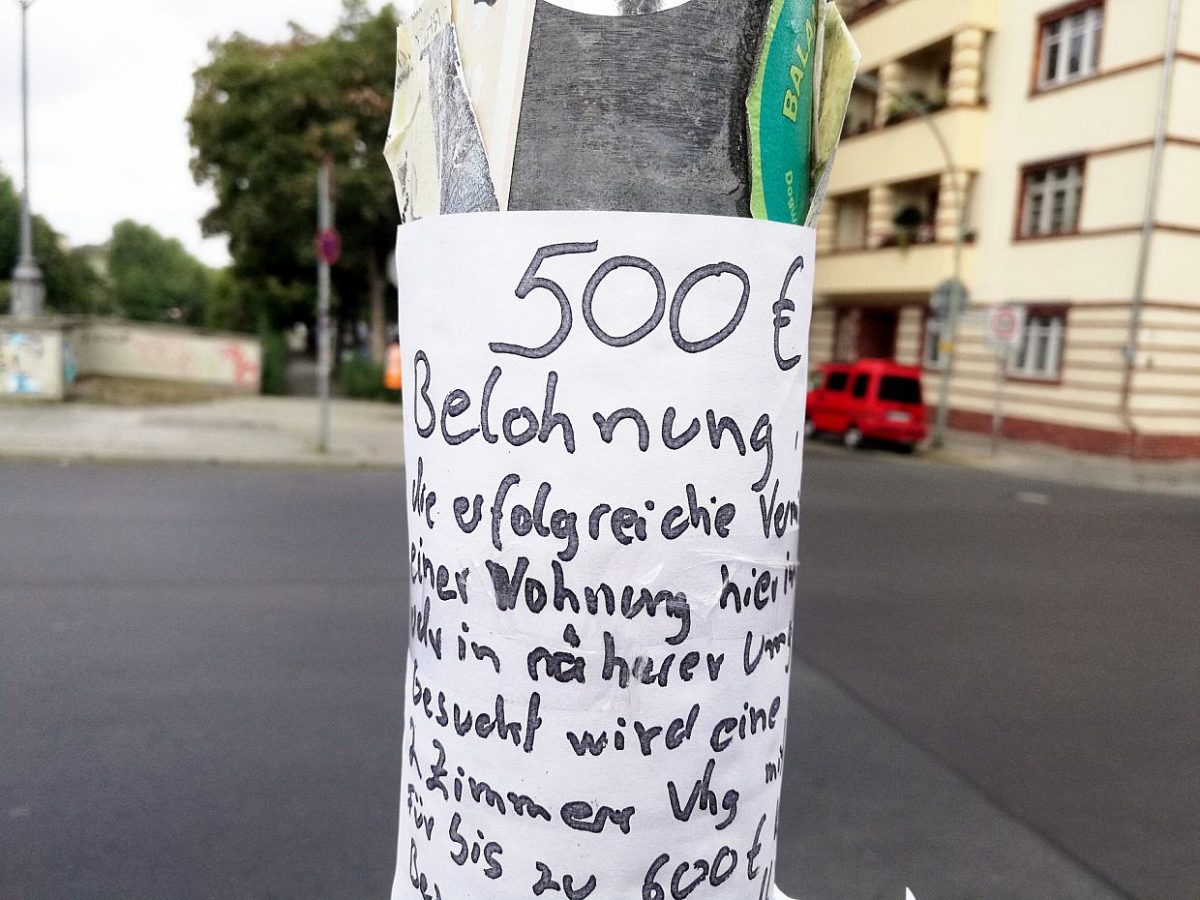 BALA
500 €
Belohnung
erfolgreiche Verm
einer Wohnung hier in
oder in näherer Umg
Gesucht wird eine
2 Zimmer Whg mi
für bis zu 600€
Be